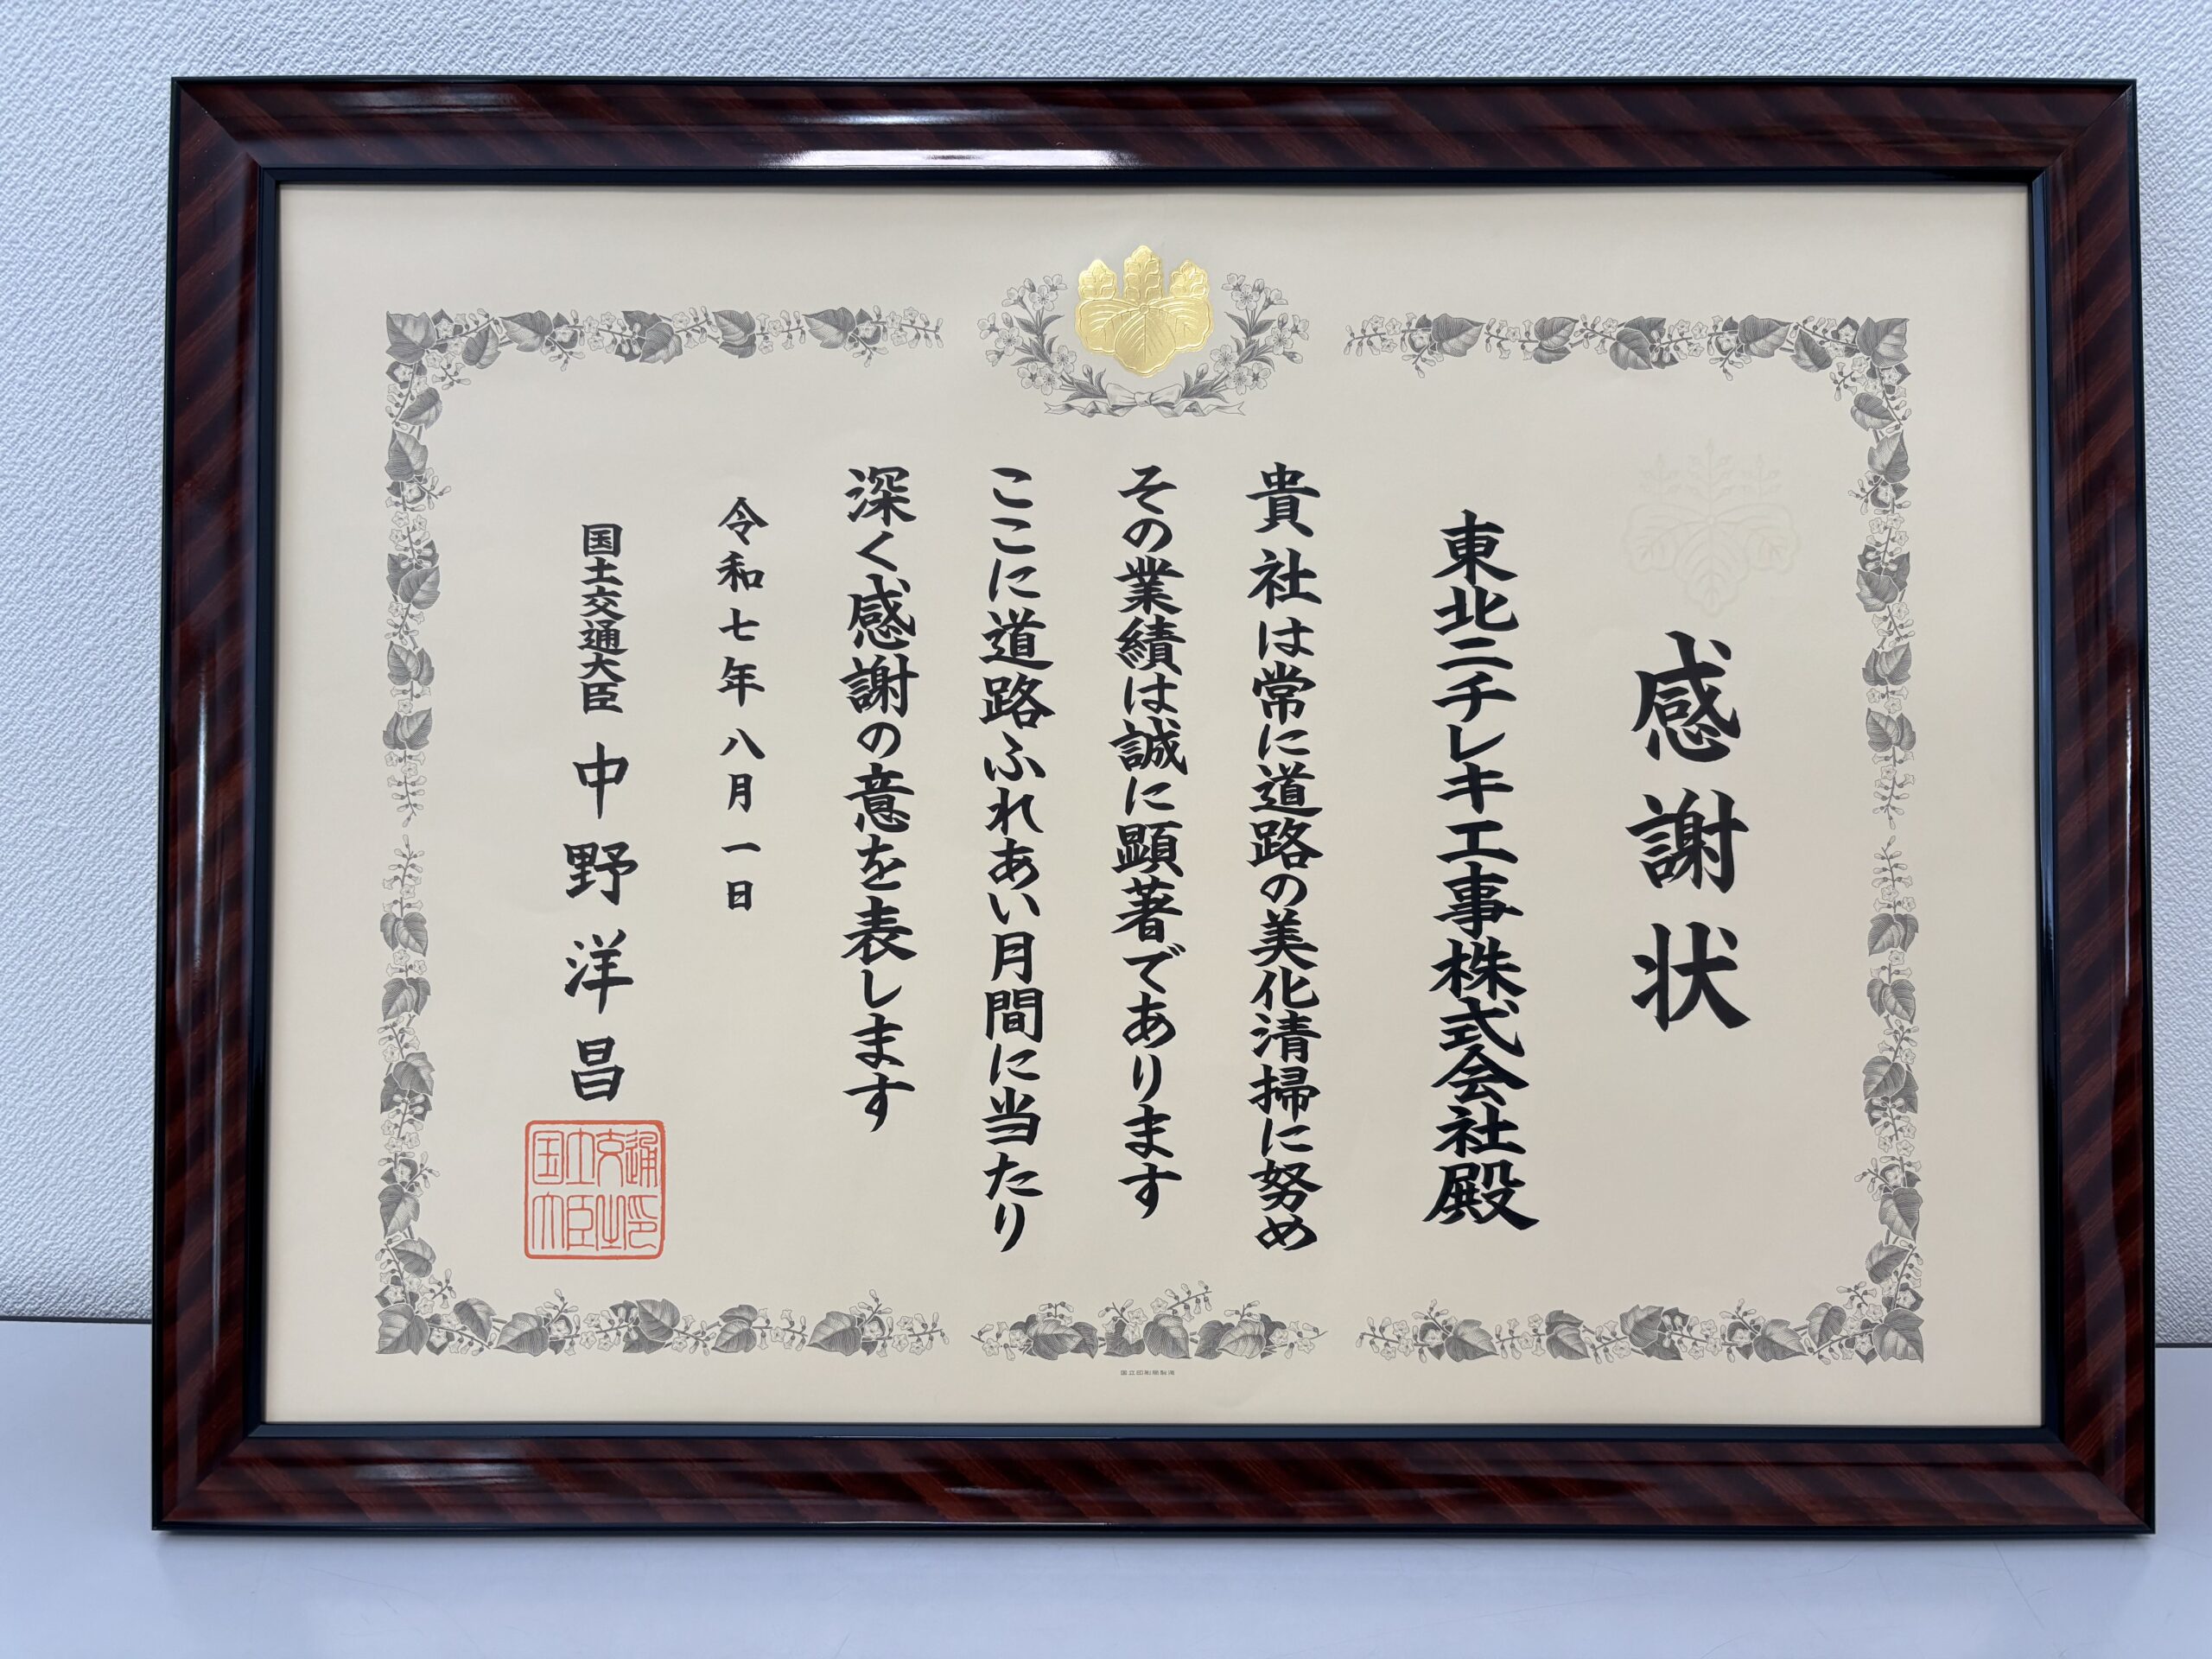 感謝状
東北ニチレキ工事株式会社殿
貴社は常に道路の美化清掃に努め
その業績は誠に顕著であります
ここに道路ふれあい月間に当たり
深く感謝の意を表します
令和七年八月一日
国土交通大臣 中野洋昌
国土交通大臣之印
国立印刷局製造